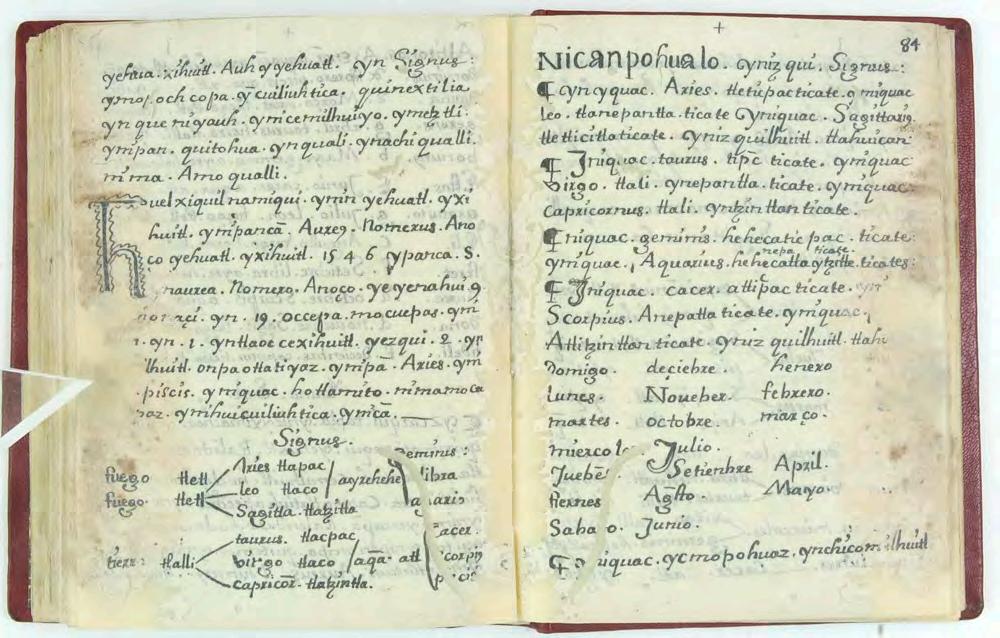 yehua. xihuitl. Auh yyehuatl. yn Signus:
ymoj. och copa. ȳ cuiliuhtica. quinextilia
yn que niyauh. ymcemilhuiyo. ymetztli.
ympan. quitohua. yn quali. ynachi qualli.
nima. Amo qualli.
huel xiquil namiqui. ymin yehuatl. yxi
huitl. ympancā. Aureg. Nomerus. Ano
co yehuatl. yxihuitl. 1546 ypanca. S.
naurea. Nomero. Anoço. ye yenahui.
yn. 19. occepa. mocuepas. ym
1. yn. 1. yntlaoc cexihuitl. yezqui. 2. yn
lhuitl. onpa otlatiyaz. ynipā. Aries. ym
piscis. ymiquac. hotlamito. nimamoca
ynihuicuiliuhtica. ymcā.
Signus.
fuego tletl Aries tlapac ayrehehe geminus:
fuego tletl leo tlaco libra
Sagitta. tlatzitla
taurus. tlacpac acer.
tierr: tlalli birgo tlaco aq̄a. atl corpiu
capricor. tlatzintla.
84
Nicanpohualo. yniz qui. Signus:
¶ yn yquac. Aries. tletiipac ticate. ymiquac
leo. tlanepantla. ticate Yniquac. Sagittariu.
tletlicitla ticate. yniz quilhuitl. tlahuican
¶ Jniquac. taurus. tip̄c ticate. ymiquac
birgo. tlali. ynepantla. ticate. ymiquac.
capricornus. tlali. yntzintlan ticate.
¶ niquac. geminis. hehecatic pac. ticate.
nepa ticate.
ymiquac. Aquarius. hehecatla ytzitle. ticates:
¶ Jniquac. cacer. atlipac ticate. yni
Scorpius. Anepatla ticate. ymiquac.
Atlitzintlan ticate. yniz quilhuitl. tlahi
Domigo. deçiebre. henero
lunes. Noueber. febrero.
martes. octobre. março.
miercol Julio.
Juebēs Setienbre April.
fiernes Agsto. Mayo.
Saba o. Junio.
iquac. ycmopohuaz. ynchicomilhuitl